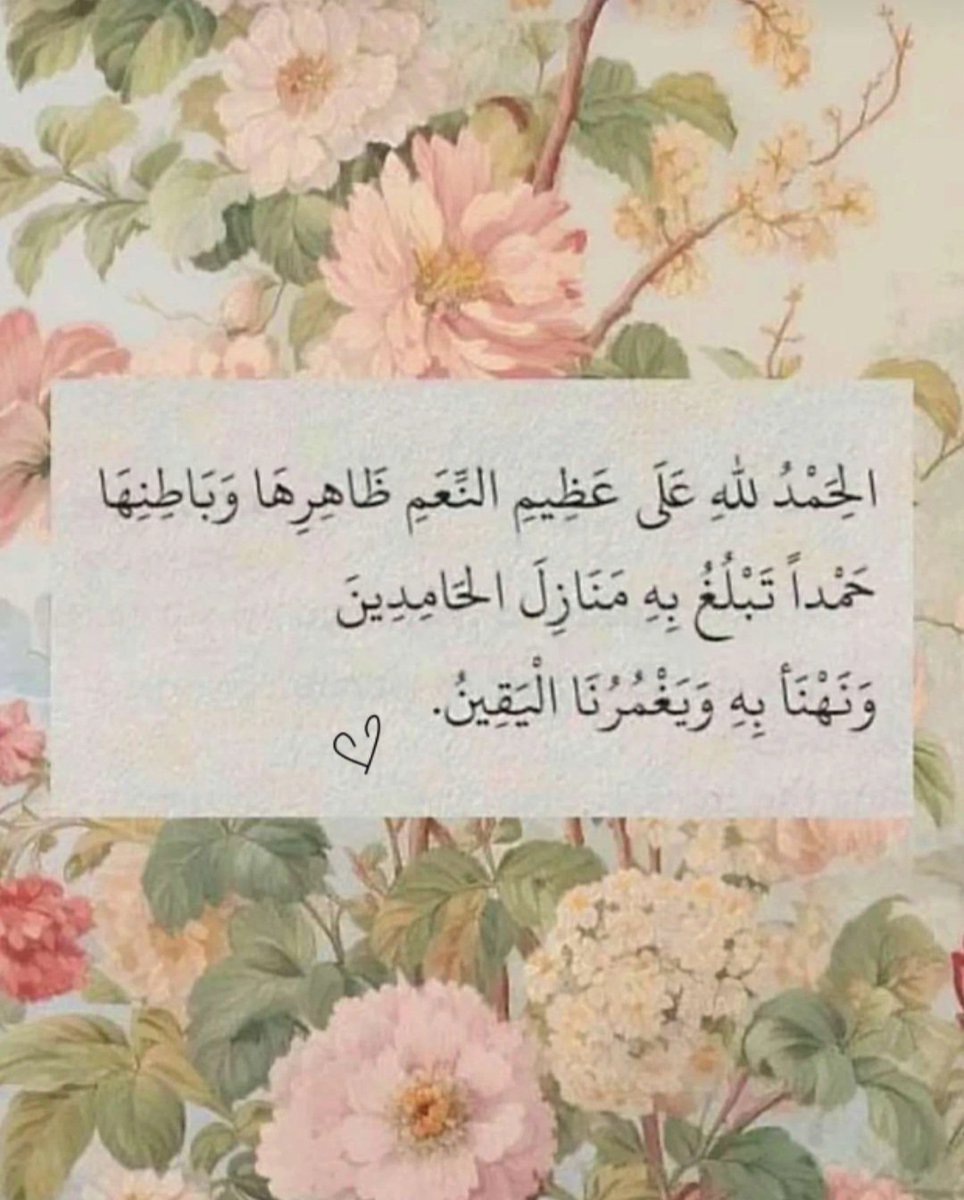 الحَمْدُ للهِ عَلَى عَظِيمِ النِّعَمِ ظَاهِرِهَا وَبَاطِنِهَا
حَمْداً تَبْلُغُ بِهِ مَنَازِلَ الحَامِدِينَ
وَنَهْنَأ بِهِ وَيَغْمُرُنَا الْيَقِينُ.